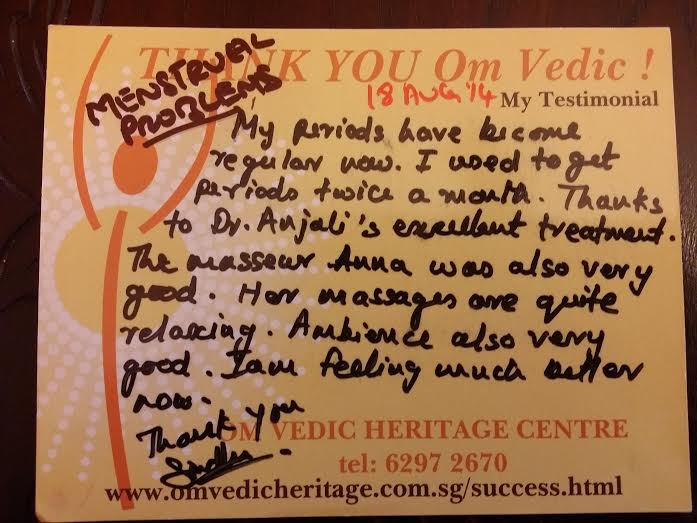 THANK YOU Om Vedic !
MENSTRUAL
PROBLEMS
18 AUG '14
My Testimonial
My periods have become
regular now. I used to get
periods twice a month. Thanks
to Dr. Anjali's excellent treatment.
The masseur Anna was also very
good. Her massages are quite
relaxing. Ambience also very
good. I am feeling much better
now.
Thank you
OM VEDIC HERITAGE CENTRE
tel: 6297 2670
www.omvedicheritage.com.sg/success.html